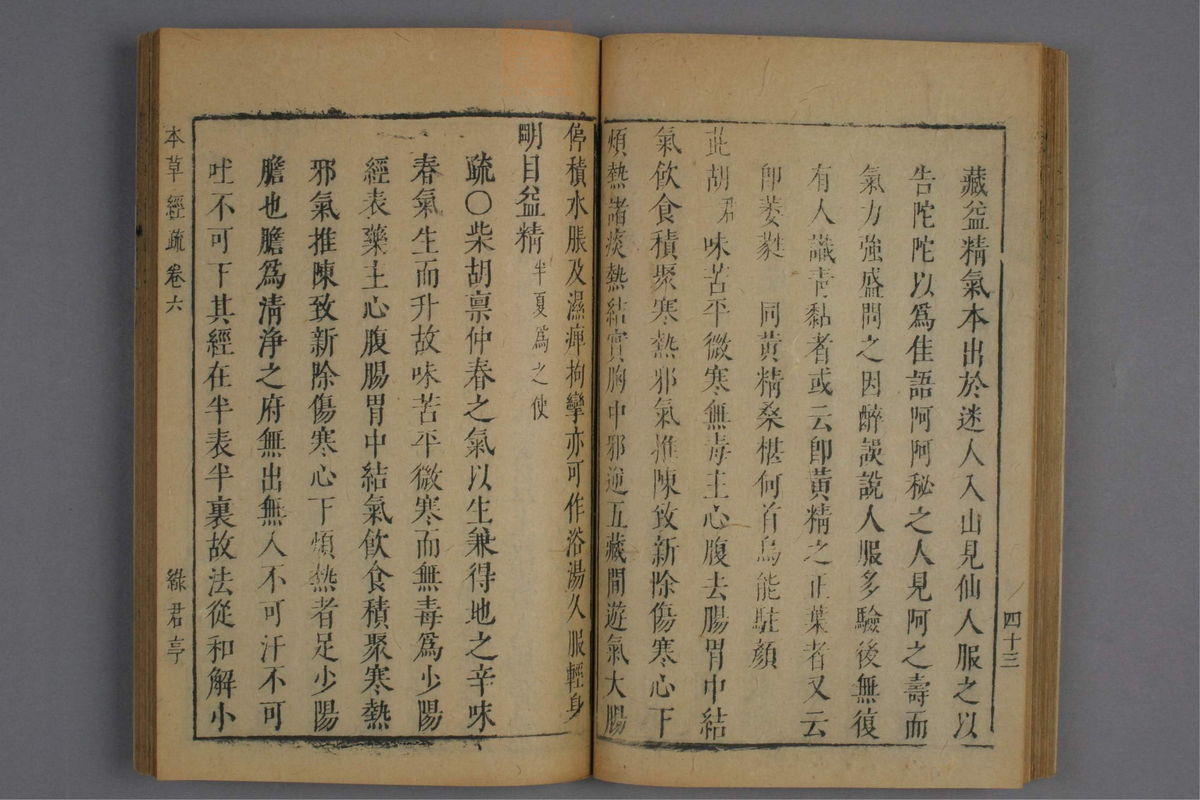 藏益精氣本出於迷人入山見仙人服之以
告陀陀以爲佳語阿阿秘之人見阿之壽而
氣力強盛問之因醉誤說人服多驗後無復
有人識靑黏者或云卽黃精之正葉者又云
卽萎蕤　同黃精桑椹何首烏能駐顏
茈胡君味苦平微寒無毒主心腹去腸胃中結
氣飲食積聚寒熱邪氣推陳致新除傷寒心下
煩熱諸痰熱結實胸中邪逆五藏間遊氣大腸
四十三
停積水脹及濕痺拘攣亦可作浴湯久服輕身
明目益精半夏爲之使
疏○柴胡禀仲春之氣以生兼得地之辛味
春氣生而升故味苦平微寒而無毒爲少陽
經表藥主心腹腸胃中結氣飲食積聚寒熱
邪氣推陳致新除傷寒心下煩熱者足少陽
膽也膽爲清淨之府無出無入不可汗不可
吐不可下其經在半表半裏故法從和解小
本草經疏　卷六　綠君亭